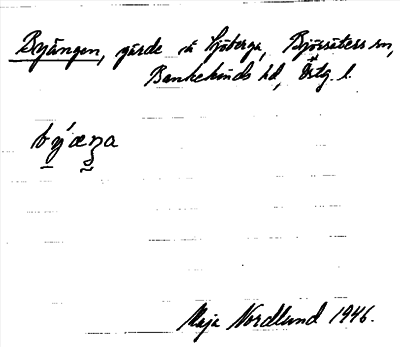 Byängen, gärde å Sjöberga, Björsäters sn,
Bankekinds hd, Östg. l.
býæŋa
Maja Nordlund 1946.